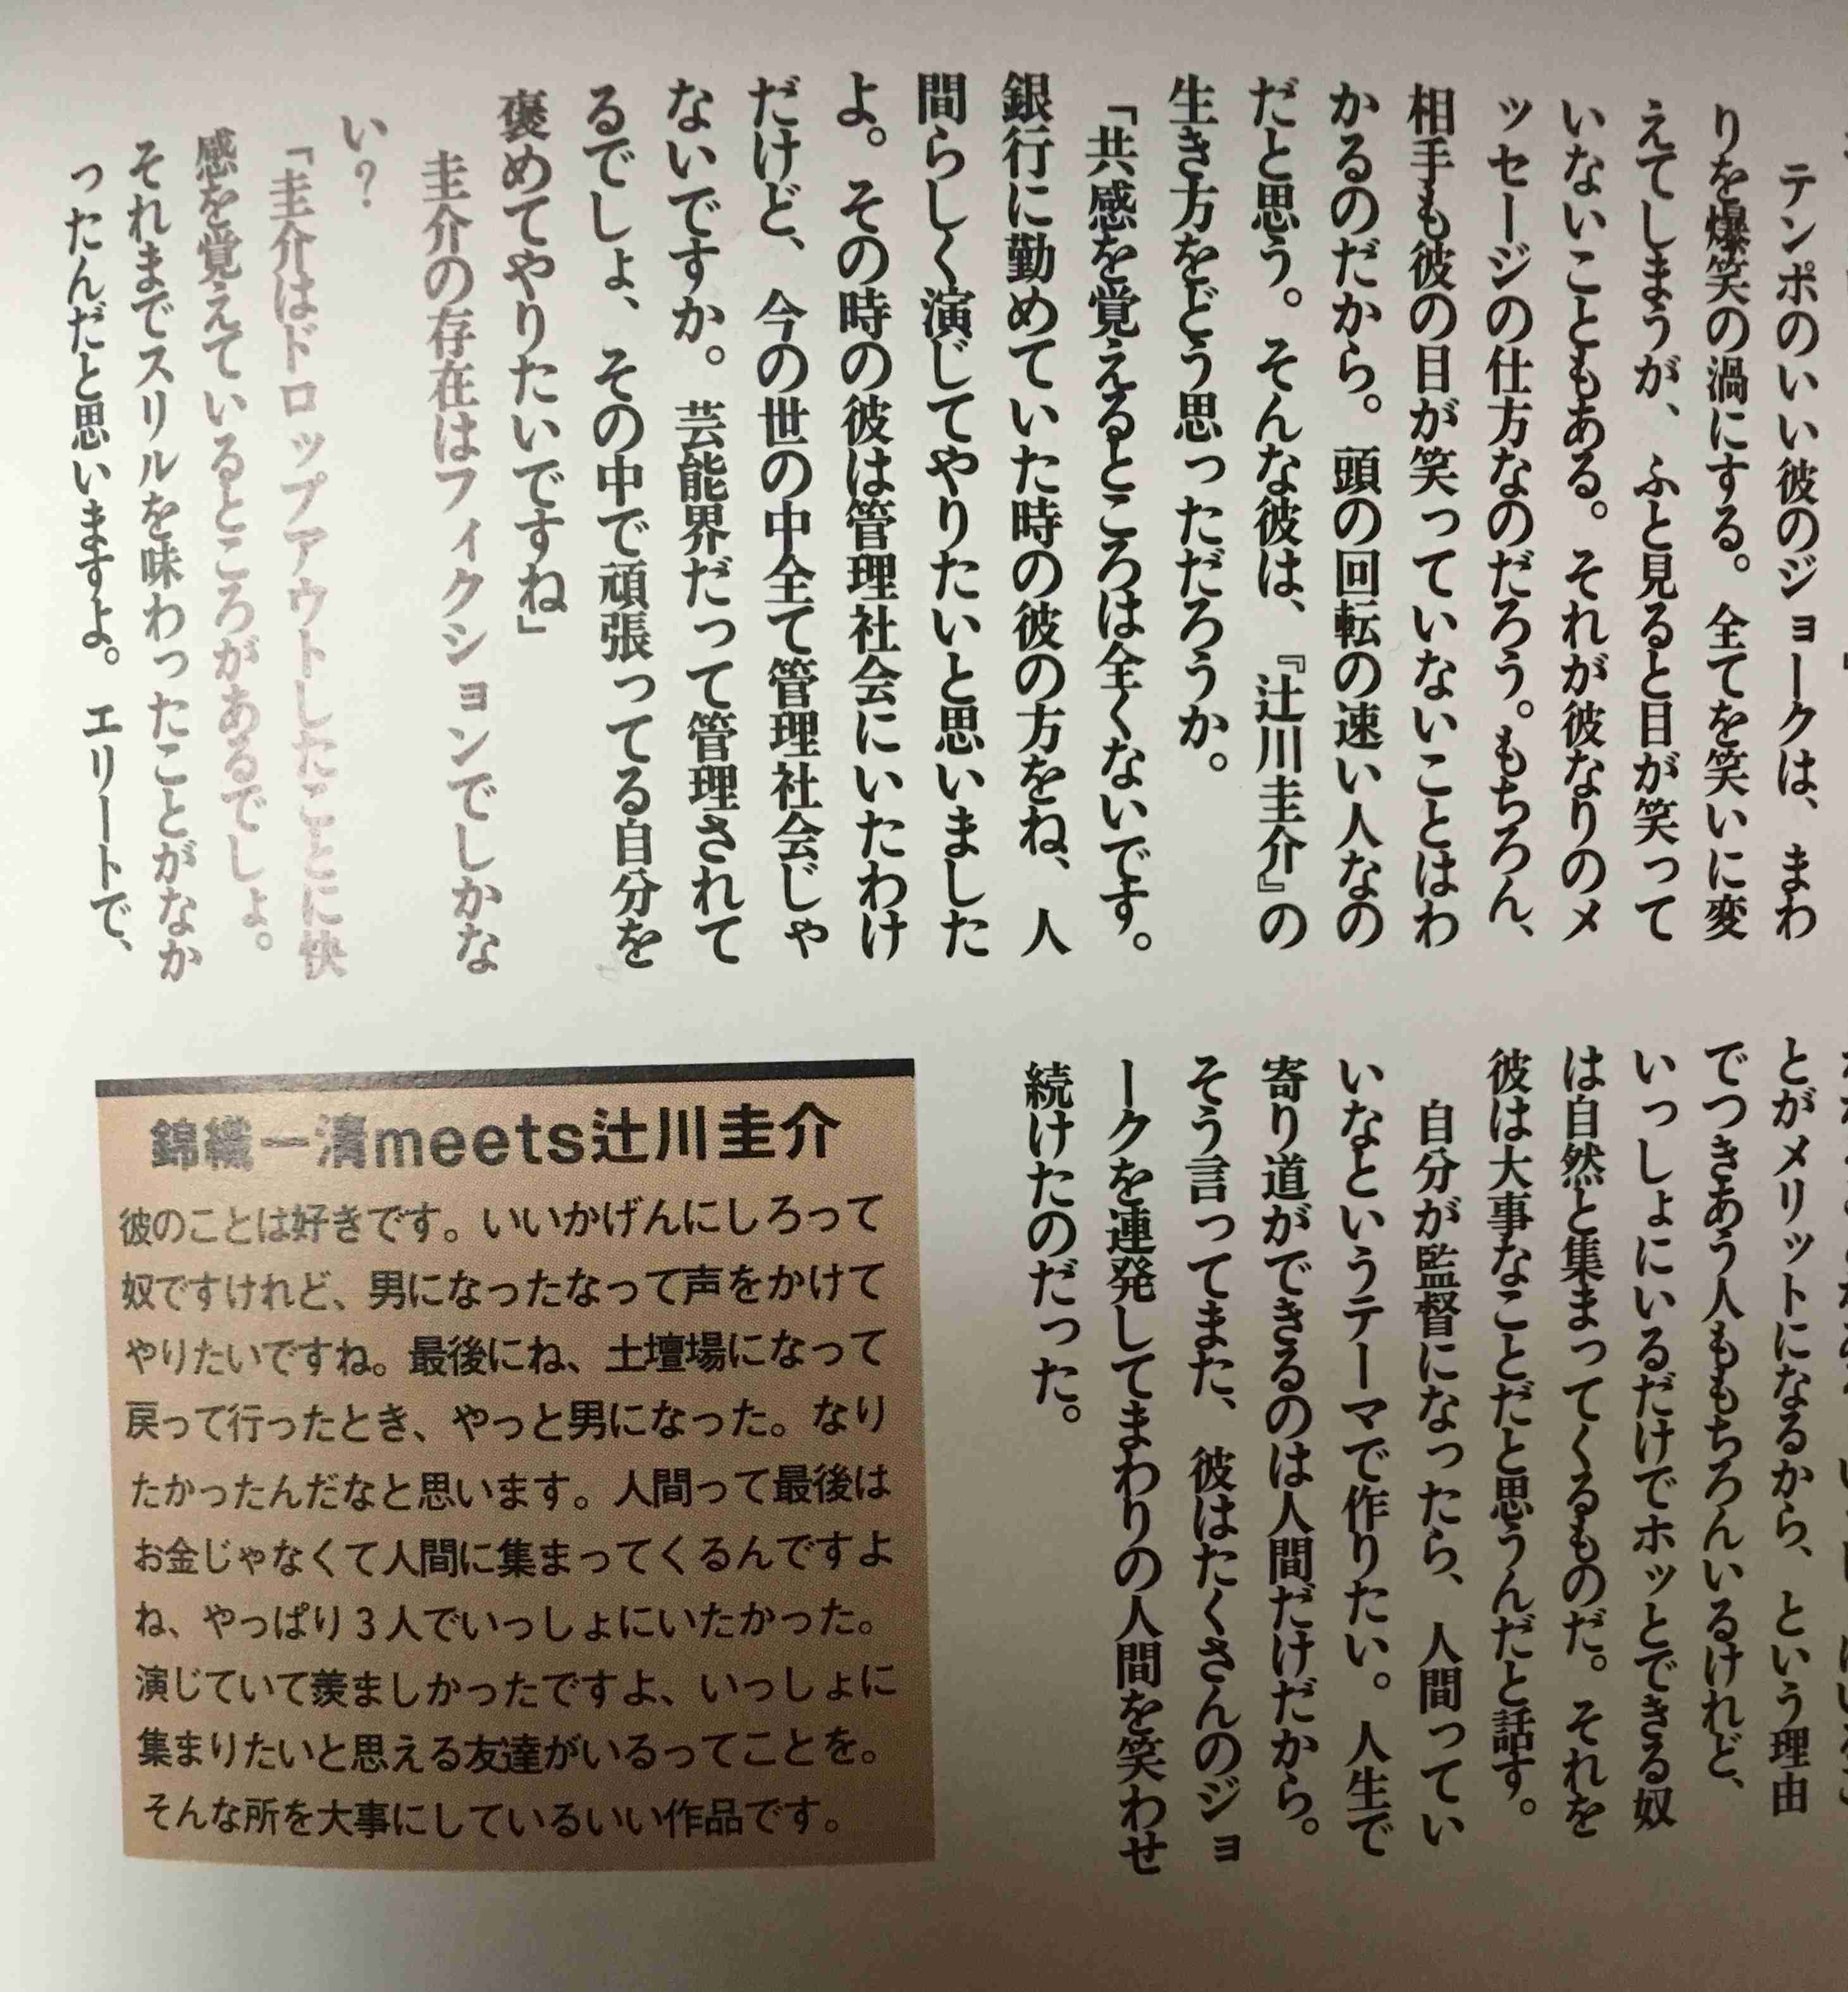 テンポのいい彼のジョークは、まわ
りを爆笑の渦にする。全てを笑いに変
えてしまうが、ふと見ると目が笑って
いないこともある。それが彼なりのメ
ッセージの仕方なのだろう。もちろん、
相手も彼の目が笑っていないことはわ
かるのだから。頭の回転の速い人なの
だと思う。そんな彼は、『辻川圭介』の
生き方をどう思っただろうか。
「共感を覚えるところは全くないです。
銀行に勤めていた時の彼の方をね、人
間らしく演じてやりたいと思いました
よ。その時の彼は管理社会にいたわけ
だけど、今の世の中全て管理社会じゃ
ないですか。芸能界だって管理されて
るでしょ、その中で頑張ってる自分を
褒めてやりたいですね」
圭介の存在はフィクションでしかな
い？
「圭介はドロップアウトしたことに快
感を覚えているところがあるでしょ。
それまでスリルを味わったことがなか
ったんだと思いますよ。エリートで、
とがメリットになるから、という理由
でつきあう人ももちろんいるけれど、
いっしょにいるだけでホッとできる奴
は自然と集まってくるものだ。それを
彼は大事なことだと思うんだと話す。
自分が監督になったら、人間ってい
いなというテーマで作りたい。人生で
寄り道ができるのは人間だけだから。
そう言ってまた、彼はたくさんのジョ
ークを連発してまわりの人間を笑わせ
続けたのだった。
錦織一清meets辻川圭介
彼のことは好きです。いいかげんにしろって
奴ですけれど、男になったなって声をかけて
やりたいですね。最後にね、土壇場になって
戻って行ったとき、やっと男になった。なり
たかったんだなと思います。人間って最後は
お金じゃなくて人間に集まってくるんですよ
ね、やっぱり3人でいっしょにいたかった。
演じていて羨ましかったですよ、いっしょに
集まりたいと思える友達がいるってことを。
そんな所を大事にしているいい作品です。